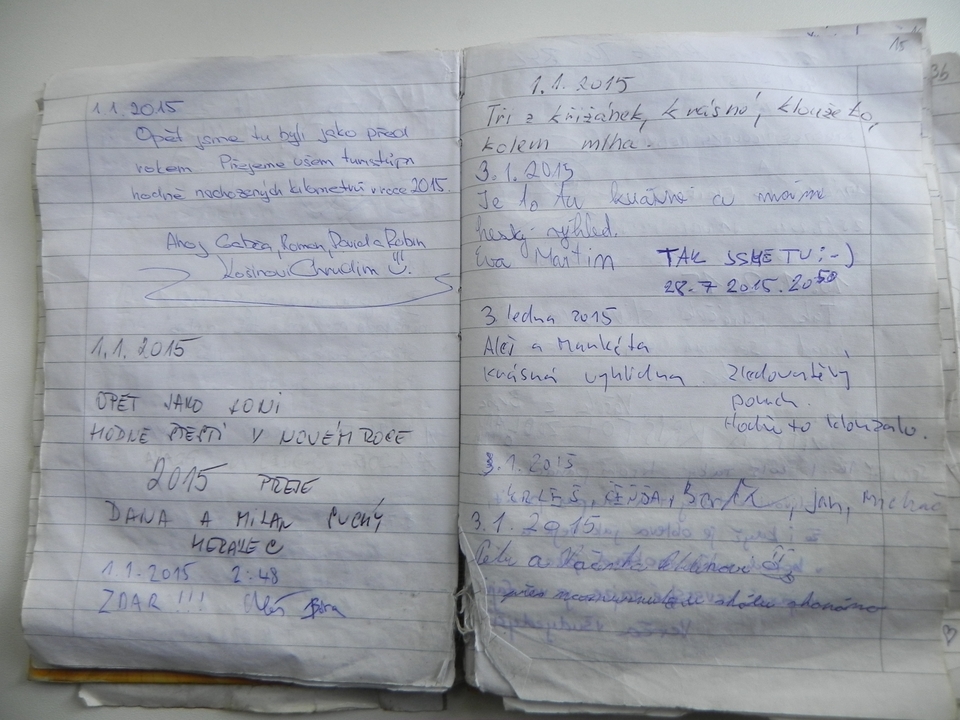 1.1.2015
Opět jsme tu byli jako před
rokem. Přejeme všem turistům
hodně nachozených kilometrů v roce 2015.
Ahoj Gábča, Roman, David a Robin
Kosinovi Chrudim
1.1.2015
OPĚT JAKO LONI
HODNĚ ŠTĚSTÍ V NOVÉM ROCE
2015 PŘEJE
DANA A MILAN SUCHÝ
1.1.2015 2:48
ZDAR !!!
15
1.1.2015
Tři z křižánek, krásný, klouže to,
kolem mlha.
3.1.2015
Je to tu krásné a máme
hezký výhled.
Eva Martin
TAK JSME TU :-)
28.7 2015. 20 50
3 ledna 2015
Aleš a Markéta
krásná vyhlídka. Zledovatělý
povrch.
Hodně to klouzalo.
3.1.2015
Jan, Michal
3.1.2015
36